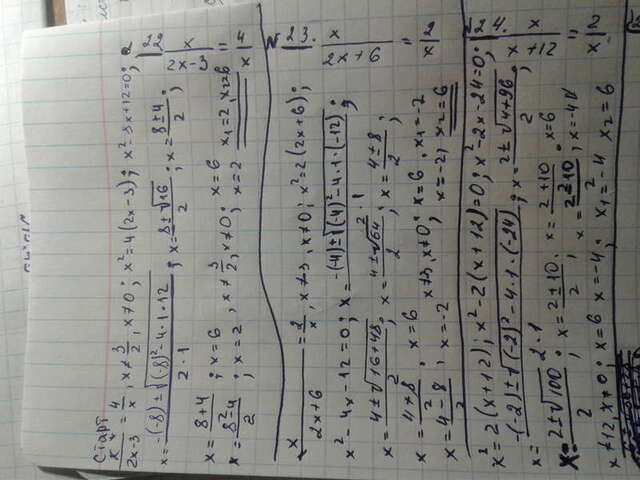 старт
x/(2x-3) = 4/x, x≠3/2, x≠0; x²=4(2x-3); x²-8x+12=0;
x = (-(-8)±√((-8)²-4·1·12))/(2·1); x = (8±√16)/2; x = (8±4)/2;
x = (8+4)/2; x=6
x = (8-4)/2; x=2, x≠3/2, x≠0; x=6 x=2 x₁=2, x₂=6
x/(2x+6) = 2/x, x≠-3, x≠0; x²=2(2x+6);
x²-4x-12=0; x = (-(-4)±√((-4)²-4·1·(-12)))/(2·1);
x = (4±√(16+48))/2; x = (4±√64)/2; x = (4±8)/2;
x = (4+8)/2, x=6
x = (4-8)/2; x=-2 x≠3, x≠0; x=6 x=-2, x₁=-2 x₂=6
x²=2(x+12); x²-2(x+12)=0; x²-2x-24=0;
x = (-(-2)±√((-2)²-4·1·(-24)))/(2·1); x = (2±√(4+96))/2;
x = (2±√100)/2; x = (2±10)/2; x = (2+10)/2; x=6
x = (2-10)/2; x=-4
x≠12, x≠0; x=6 x=-4; x₁=-4 x₂=6
№22. x/(2x-3) = 4/x
№23. x/(2x+6) = 2/x
№24. x/(x+12) = 2/x